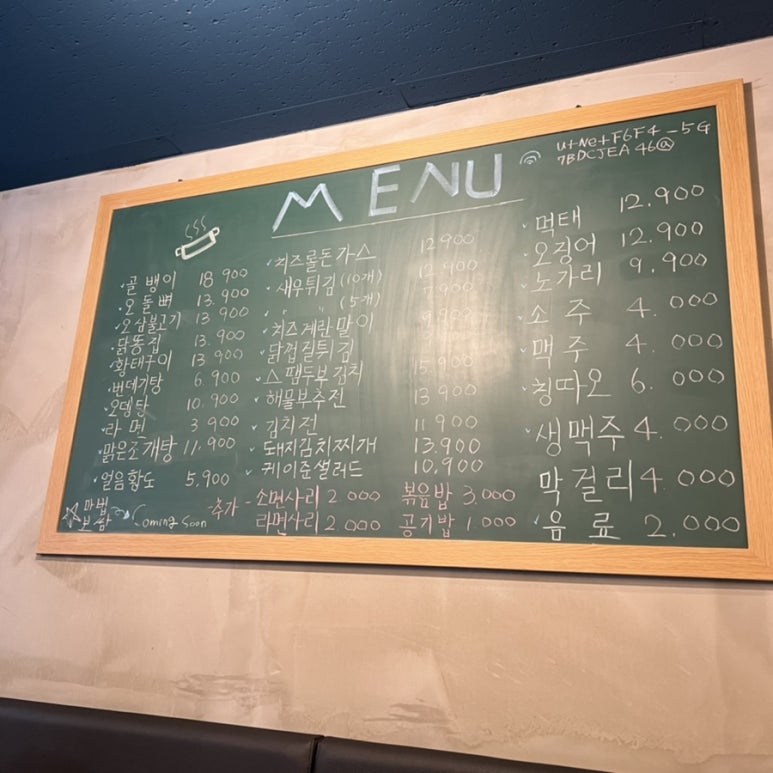 MENU
U+Net F6F4-5G
7BDCJEA46@
골뱅이 18.900
오돌뼈 13.900
오삼불고기 13.900
닭똥집 13.900
황태구이 13.900
번데기탕 6.900
오뎅탕 10.900
라면 3.900
맑은조개탕 11.900
얼음황도 5.900
마법
보쌈
Coming Soon
치즈롤돈가스 12.900
새우튀김(10개) 12.900
〃 〃 (5개) 7.900
치즈계란말이
닭껍질튀김
스팸두부김치 15.900
해물부추전 13.900
김치전 11.900
돼지김치찌개 13.900
케이준샐러드 10,900
추가 - 소면사리 2.000 볶음밥 3.000
라면사리 2.000 공기밥 1.000
먹태 12.900
오징어 12.900
노가리 9.900
소주 4.000
맥주 4.000
칭따오 6.000
생맥주 4.000
막걸리 4.000
음료 2.000